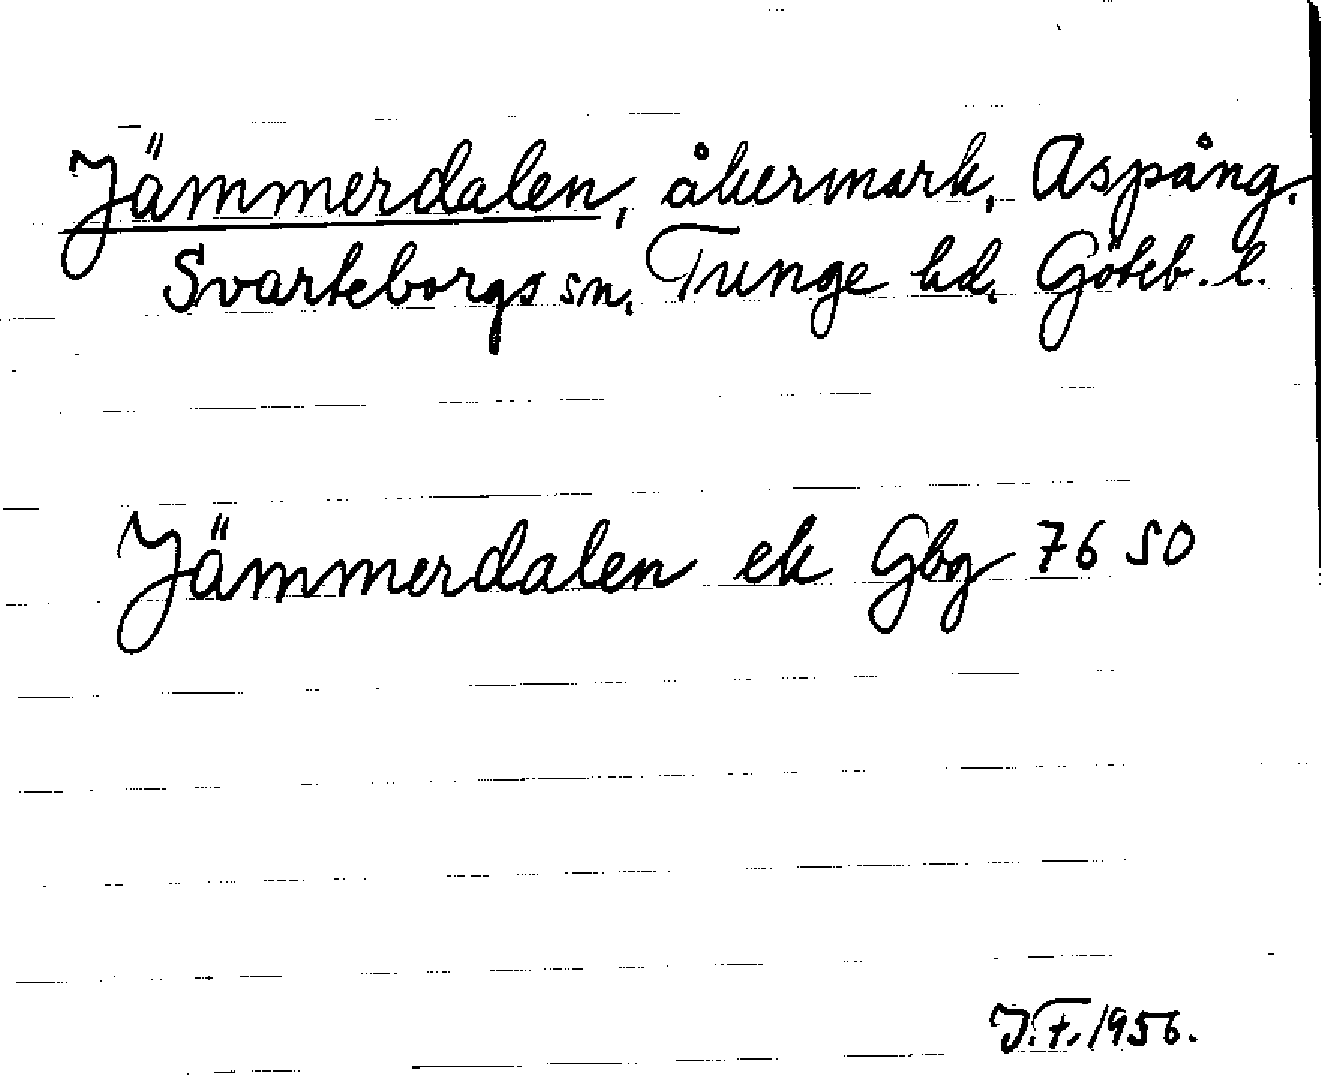 Jämmerdalen, åkermark, Aspång,
Svarteborgs sn, Tunge hd, Göteb. l.
Jämmerdalen ek Gbg 7650
J.F. 1956.